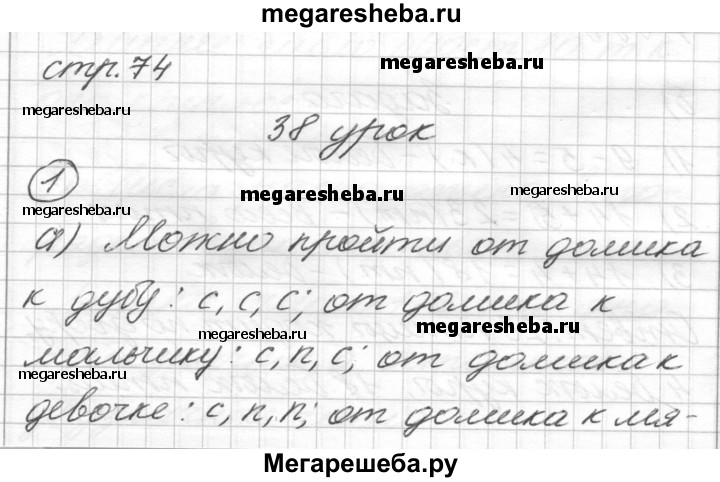 megaresheba.ru
стр.74
megaresheba.ru
megaresheba.ru
38 урок
1
megaresheba.ru
megaresheba.ru
megaresheba.ru
а) Можно пройти от домика
к дубу: с, с, с; от домика к
megaresheba.ru
megaresheba.ru
мальчику: с, п, с; от домика к
megaresheba.ru
девочке: с, п, п; от домика к мя-
Мегарешеба.ру